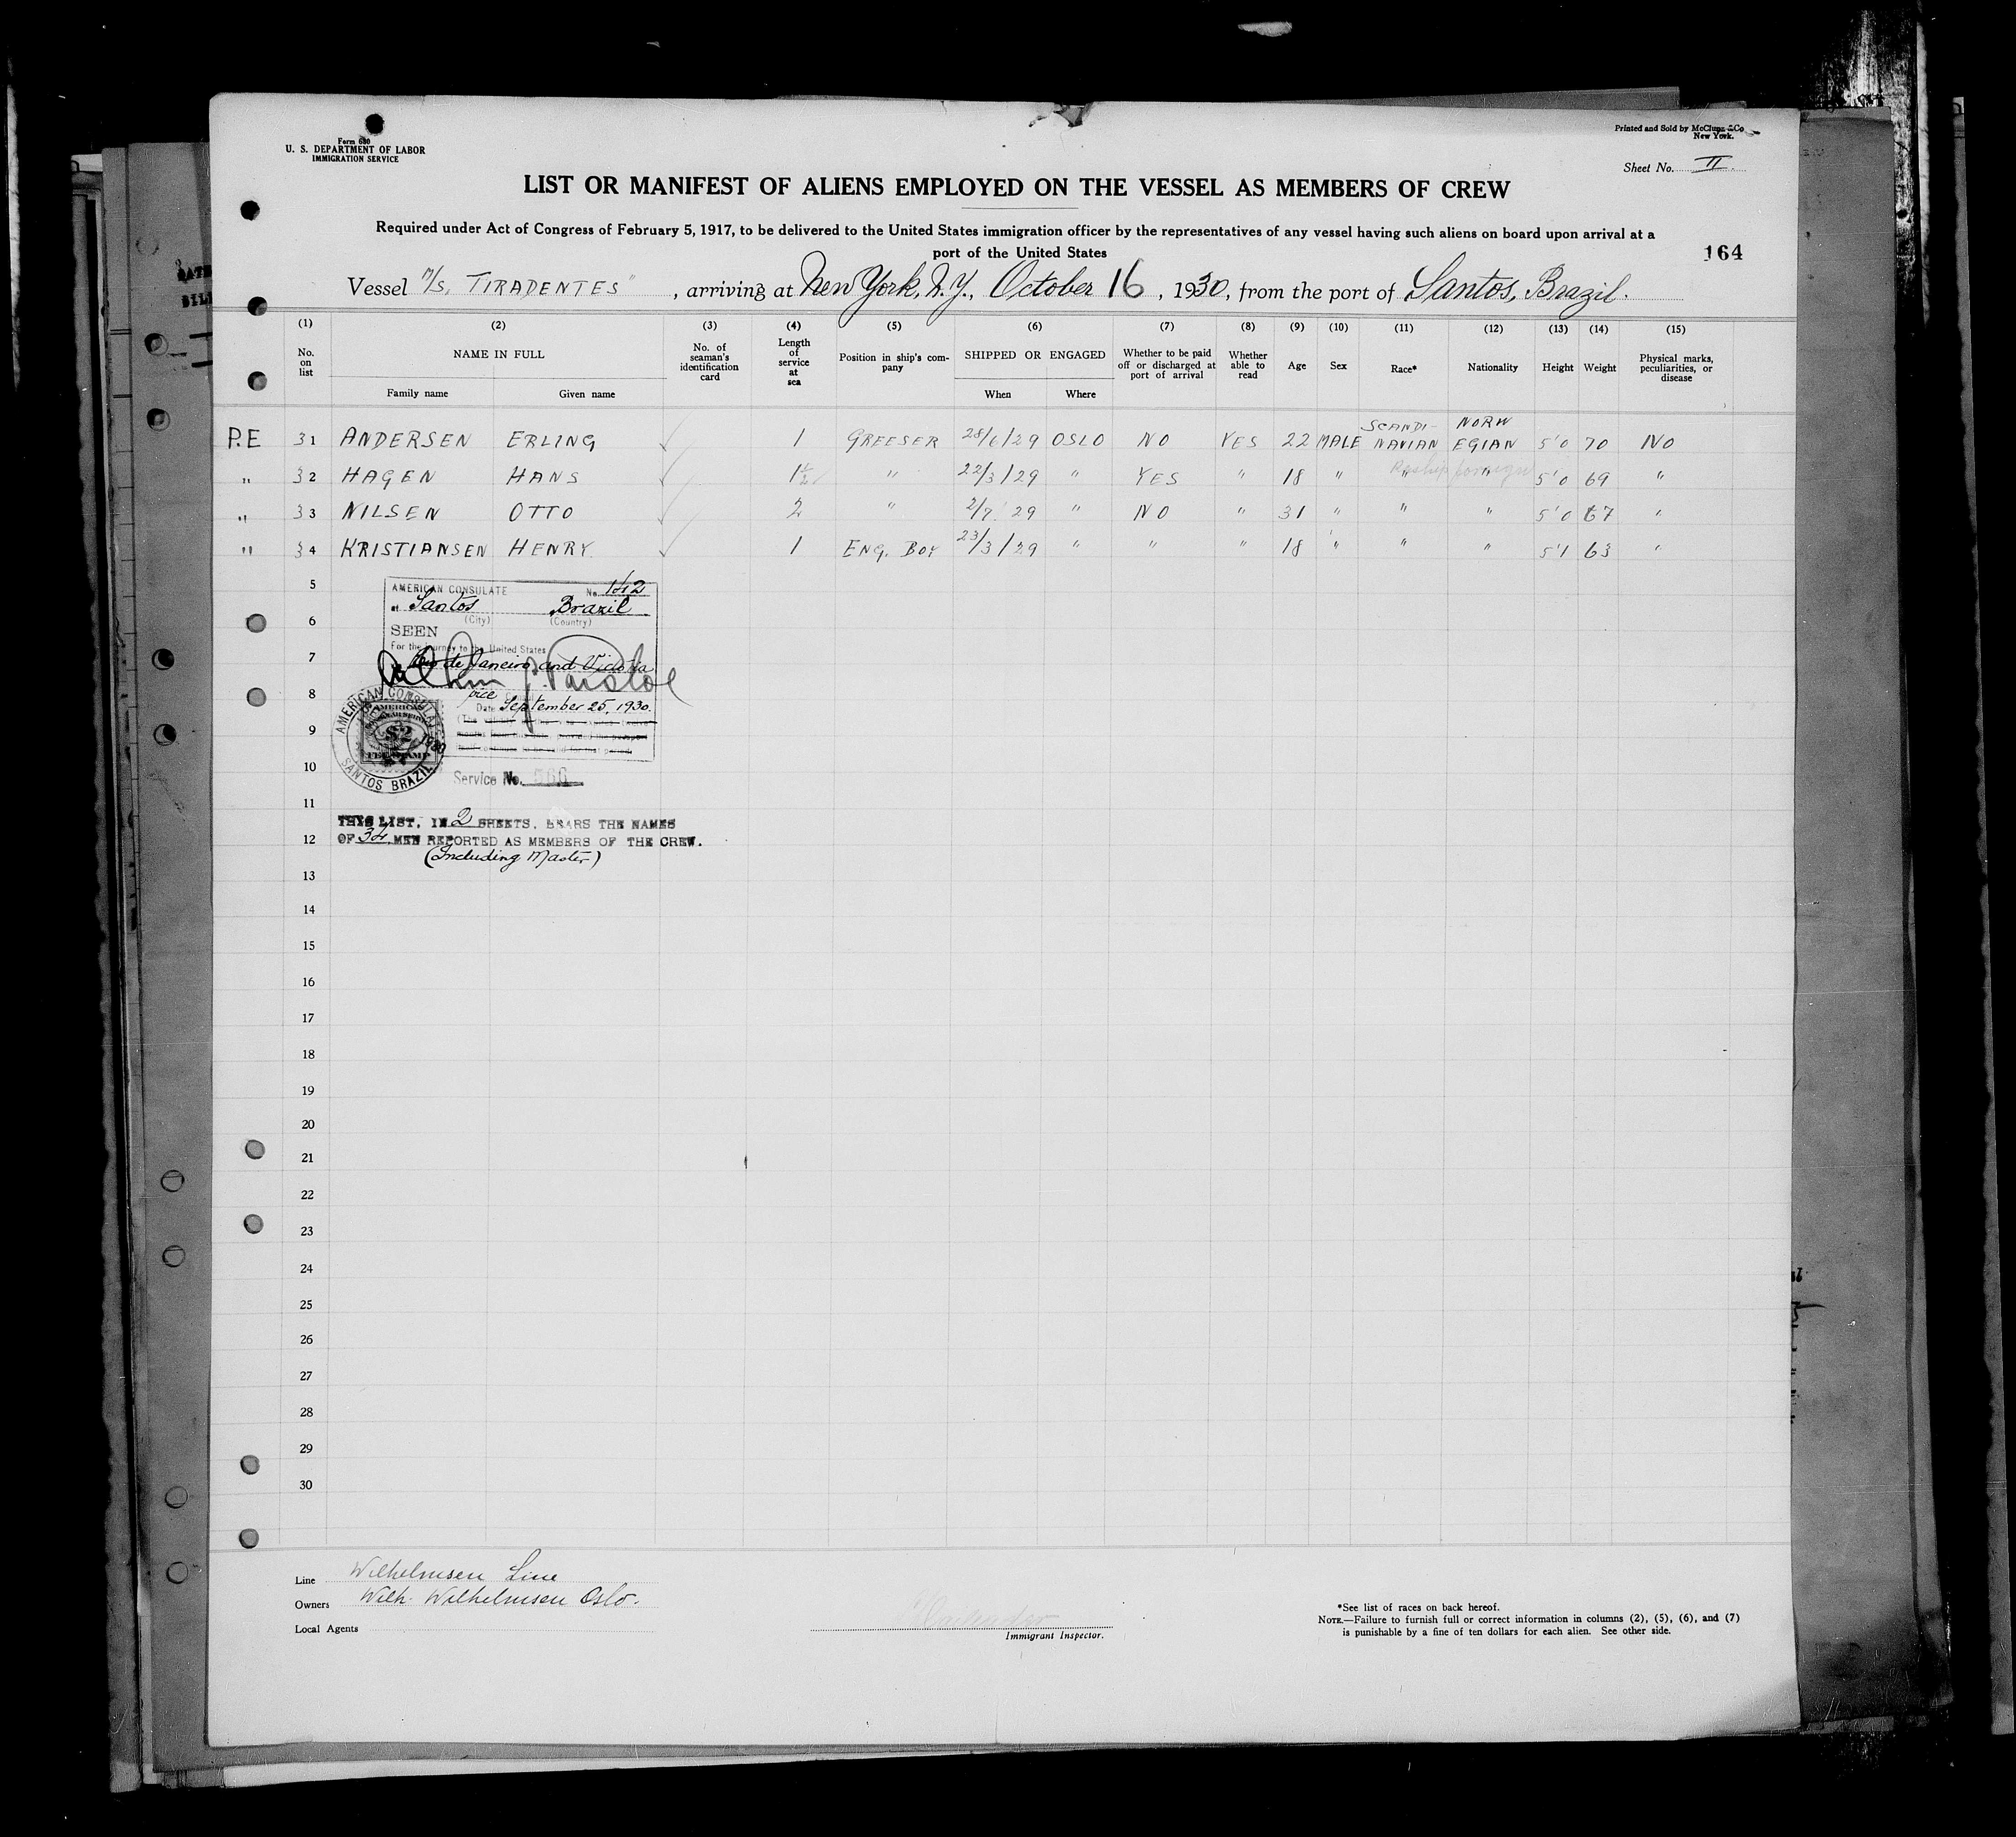 Form 680
U. S. DEPARTMENT OF LABOR
IMMIGRATION SERVICE
Printed and Sold by McClung & Co
New York.
Sheet No. II.
LIST OR MANIFEST OF ALIENS EMPLOYED ON THE VESSEL AS MEMBERS OF CREW
Required under Act of Congress of February 5, 1917, to be delivered to the United States immigration officer by the representatives of any vessel having such aliens on board upon arrival at a
port of the United States
164
Vessel M/S, TIRADENTES", arriving at New York, N.Y., October 16, 1930, from the port of Santos, Brazil.
(1) (2) (3) (4) (5) (6) (7) (8) (9) (10) (11) (12) (13) (14) (15)
No. on list NAME IN FULL No. of seaman's identification card Length of service at sea Position in ship's company SHIPPED OR ENGAGED Whether to be paid off or discharged at port of arrival Whether able to read Age Sex Race* Nationality Height Weight Physical marks, peculiarities, or disease
Family name Given name When Where
P.E 31 ANDERSEN ERLING 1 GREESER 28/6/29 OSLO NO YES 22 MALE SCANDI-NAVIAN NORWEGIAN 5'0 70 NO
" 32 HAGEN HANS 1½ " 22/3/29 " YES " 18 " " " 5'0 69 "
" 33 NILSEN OTTO 2 " 2/7 29 " NO " 31 " " " 5'0 67 "
" 34 KRISTIANSEN HENRY 1 ENG. BOY 23/3/29 " " " 18 " " " 5'1 63 "
5
6
7
8
9
10
11
12
13
14
15
16
17
18
19
20
21
22
23
24
25
26
27
28
29
30
AMERICAN CONSULATE No. 142
at Santos Brazil
(City) (Country)
SEEN
For the journey to the United States
Rio de Janeiro and Victoria
vice
Date September 25, 1930.
AMERICAN CONSULATE
$2
1930
SANTOS BRAZIL
Service No. 560
THIS LIST, IN 2 SHEETS, BEARS THE NAMES
OF 34 MEN REPORTED AS MEMBERS OF THE CREW.
(Including Master)
Line Wilhelmsen Line
Owners Wilh. Wilhelmsen Oslo.
Local Agents
Immigrant Inspector.
*See list of races on back hereof.
NOTE.—Failure to furnish full or correct information in columns (2), (5), (6), and (7)
is punishable by a fine of ten dollars for each alien. See other side.